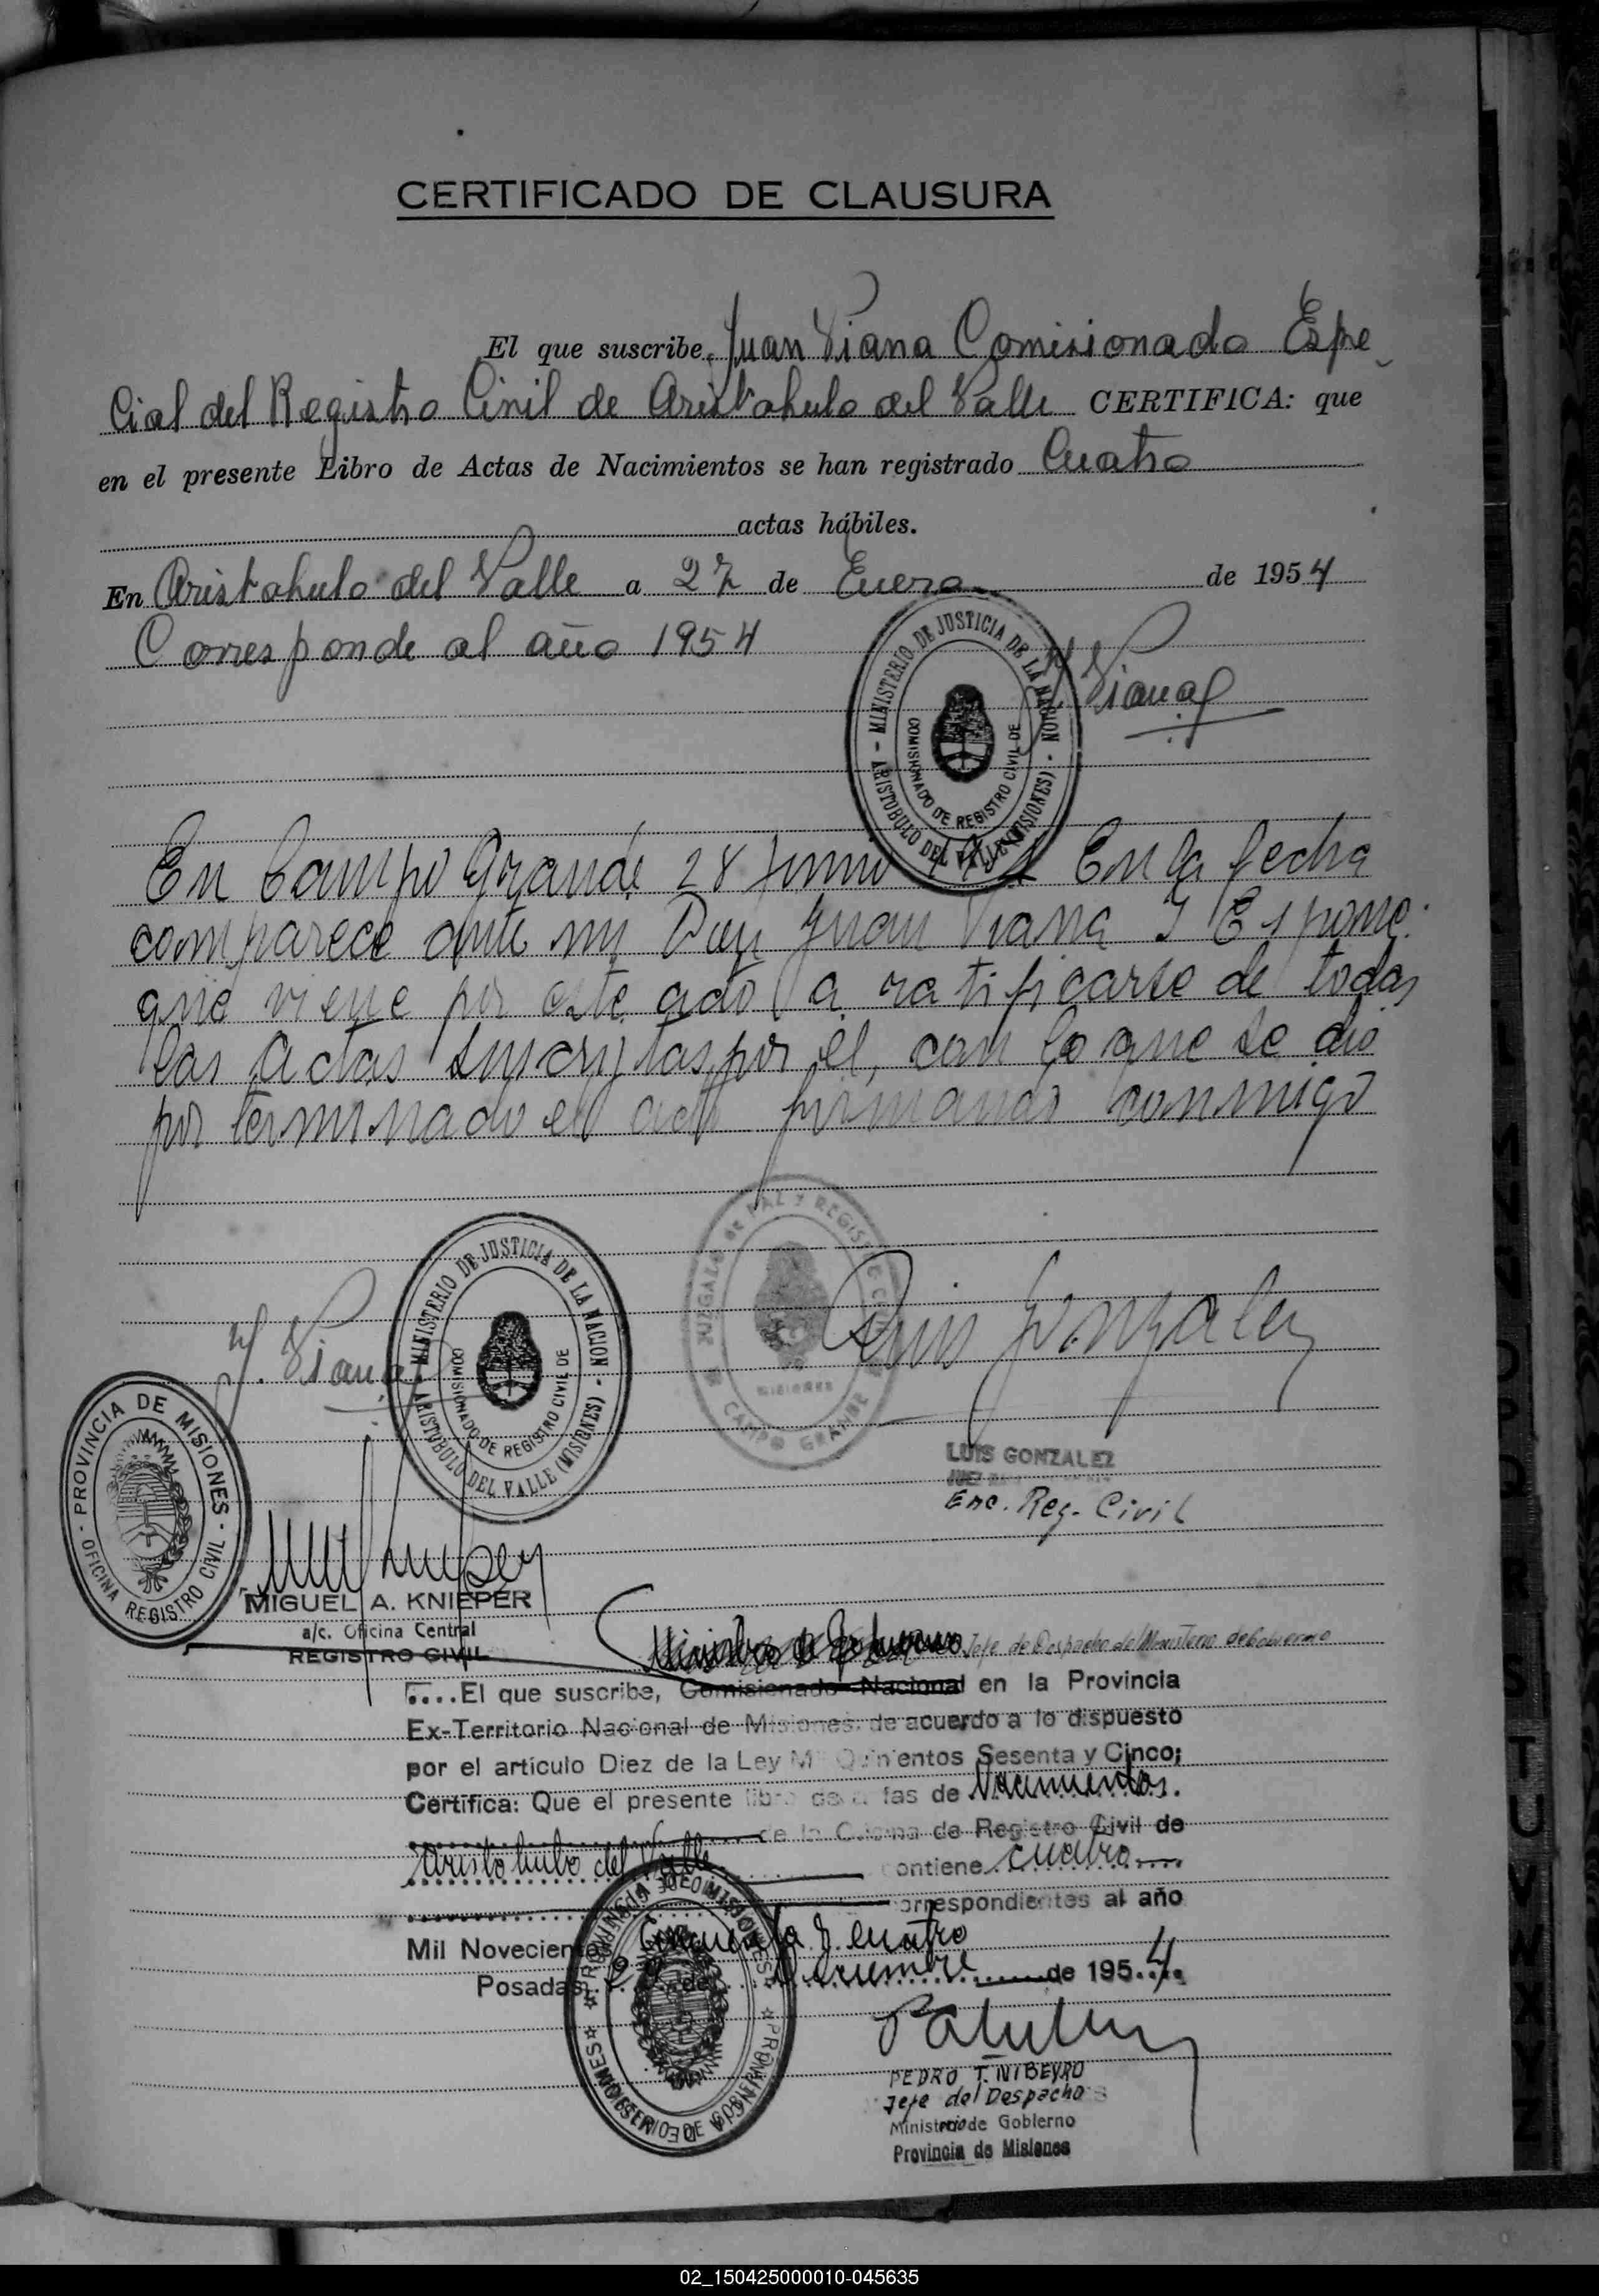 CERTIFICADO DE CLAUSURA
El que suscribe, Juan Viana Comisionado Espe
cial del Registro Civil de Aristobulo del Valle CERTIFICA: que
en el presente Libro de Actas de Nacimientos se han registrado Cuatro
actas hábiles.
En Aristobulo del Valle a 27 de Enero de 1954
Corresponde al año 1954
J. Viana
- MINISTERIO DE JUSTICIA DE LA NACION -
ARISTOBULO DEL VALLE (MISIONES)
COMISIONADO DE REGISTRO CIVIL DE
En Campo Grande 28 Junio En la fecha
comparece ante mi Don Juan Viana Y Expone:
que viene por este acto a ratificarse de todas
las actas suscriptas por el, con lo que se dio
por terminado el acto firmando conmigo
J. Viana
- MINISTERIO DE JUSTICIA DE LA NACION -
ARISTOBULO DEL VALLE (MISIONES)
COMISIONADO DE REGISTRO CIVIL DE
JUZGADO DE PAZ Y REGISTRO CIVIL
MISIONES
CAMPO GRANDE
Luis Gonzalez
LUIS GONZALEZ
Enc. Reg. Civil
- PROVINCIA DE MISIONES -
OFICINA REGISTRO CIVIL
MIGUEL A. KNIEPER
a/c. Oficina Central
REGISTRO CIVIL
Jefe de Despacho del Ministerio de Gobierno
....El que suscribe, Comisionado Nacional en la Provincia
Ex-Territorio Nacional de Misiones, de acuerdo a lo dispuesto
por el artículo Diez de la Ley Mil Quinientos Sesenta y Cinco;
Certifica: Que el presente libro de actas de Nacimientos.
de la Oficina de Registro Civil de
Aristobulo del Valle contiene cuatro
correspondientes al año
Mil Novecientos Cincuenta y cuatro
Posadas, 29 de Diciembre de 1954
PROVINCIA DE MISIONES
PEDRO T. NIBEYRO
Jefe del Despacho
Ministerio de Gobierno
Provincia de Misiones
M
N
O
P
Q
R
S
T
U
V
W
X
Y
Z
02_150425000010-045635